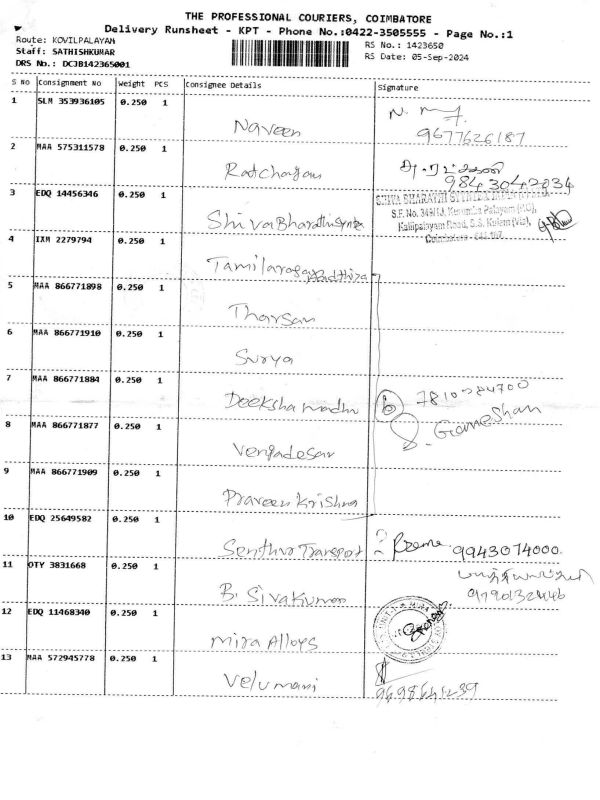 THE PROFESSIONAL COURIERS, COIMBATORE
Delivery Runsheet - KPT - Phone No.:0422-3505555 - Page No.:1
Route: KOVILPALAYAM
Staff: SATHISHKUMAR
DRS No.: DCJB142365001
RS No.: 1423650
RS Date: 05-Sep-2024
S No Consignment No Weight PCS Consignee Details Signature
1 SLM 353936105 0.250 1 Naveen
9677626187
2 MAA 575311578 0.250 1 Ratchagan
9843042834
3 EDQ 14456346 0.250 1 Shiva Bharathi
S.F. No. Palayam (PO),
Kallipalayam Road, S.S. Kulam (Via),
Coimbatore - 641 107
4 IXM 2279794 0.250 1
5 MAA 866771898 0.250 1 Tharsan
6 MAA 866771910 0.250 1 Surya
7 MAA 866771884 0.250 1 Deeksha madhu
6
S. Gameshan
8 MAA 866771877 0.250 1 Vengadesan
9 MAA 866771909 0.250 1 Praveen Krishna
10 EDQ 25649582 0.250 1 Senthur Transport
9943074000
11 OTY 3831668 0.250 1 B. Sivakumar
12 EDQ 11468340 0.250 1 Mira Alloys
13 MAA 572945778 0.250 1 Velumani